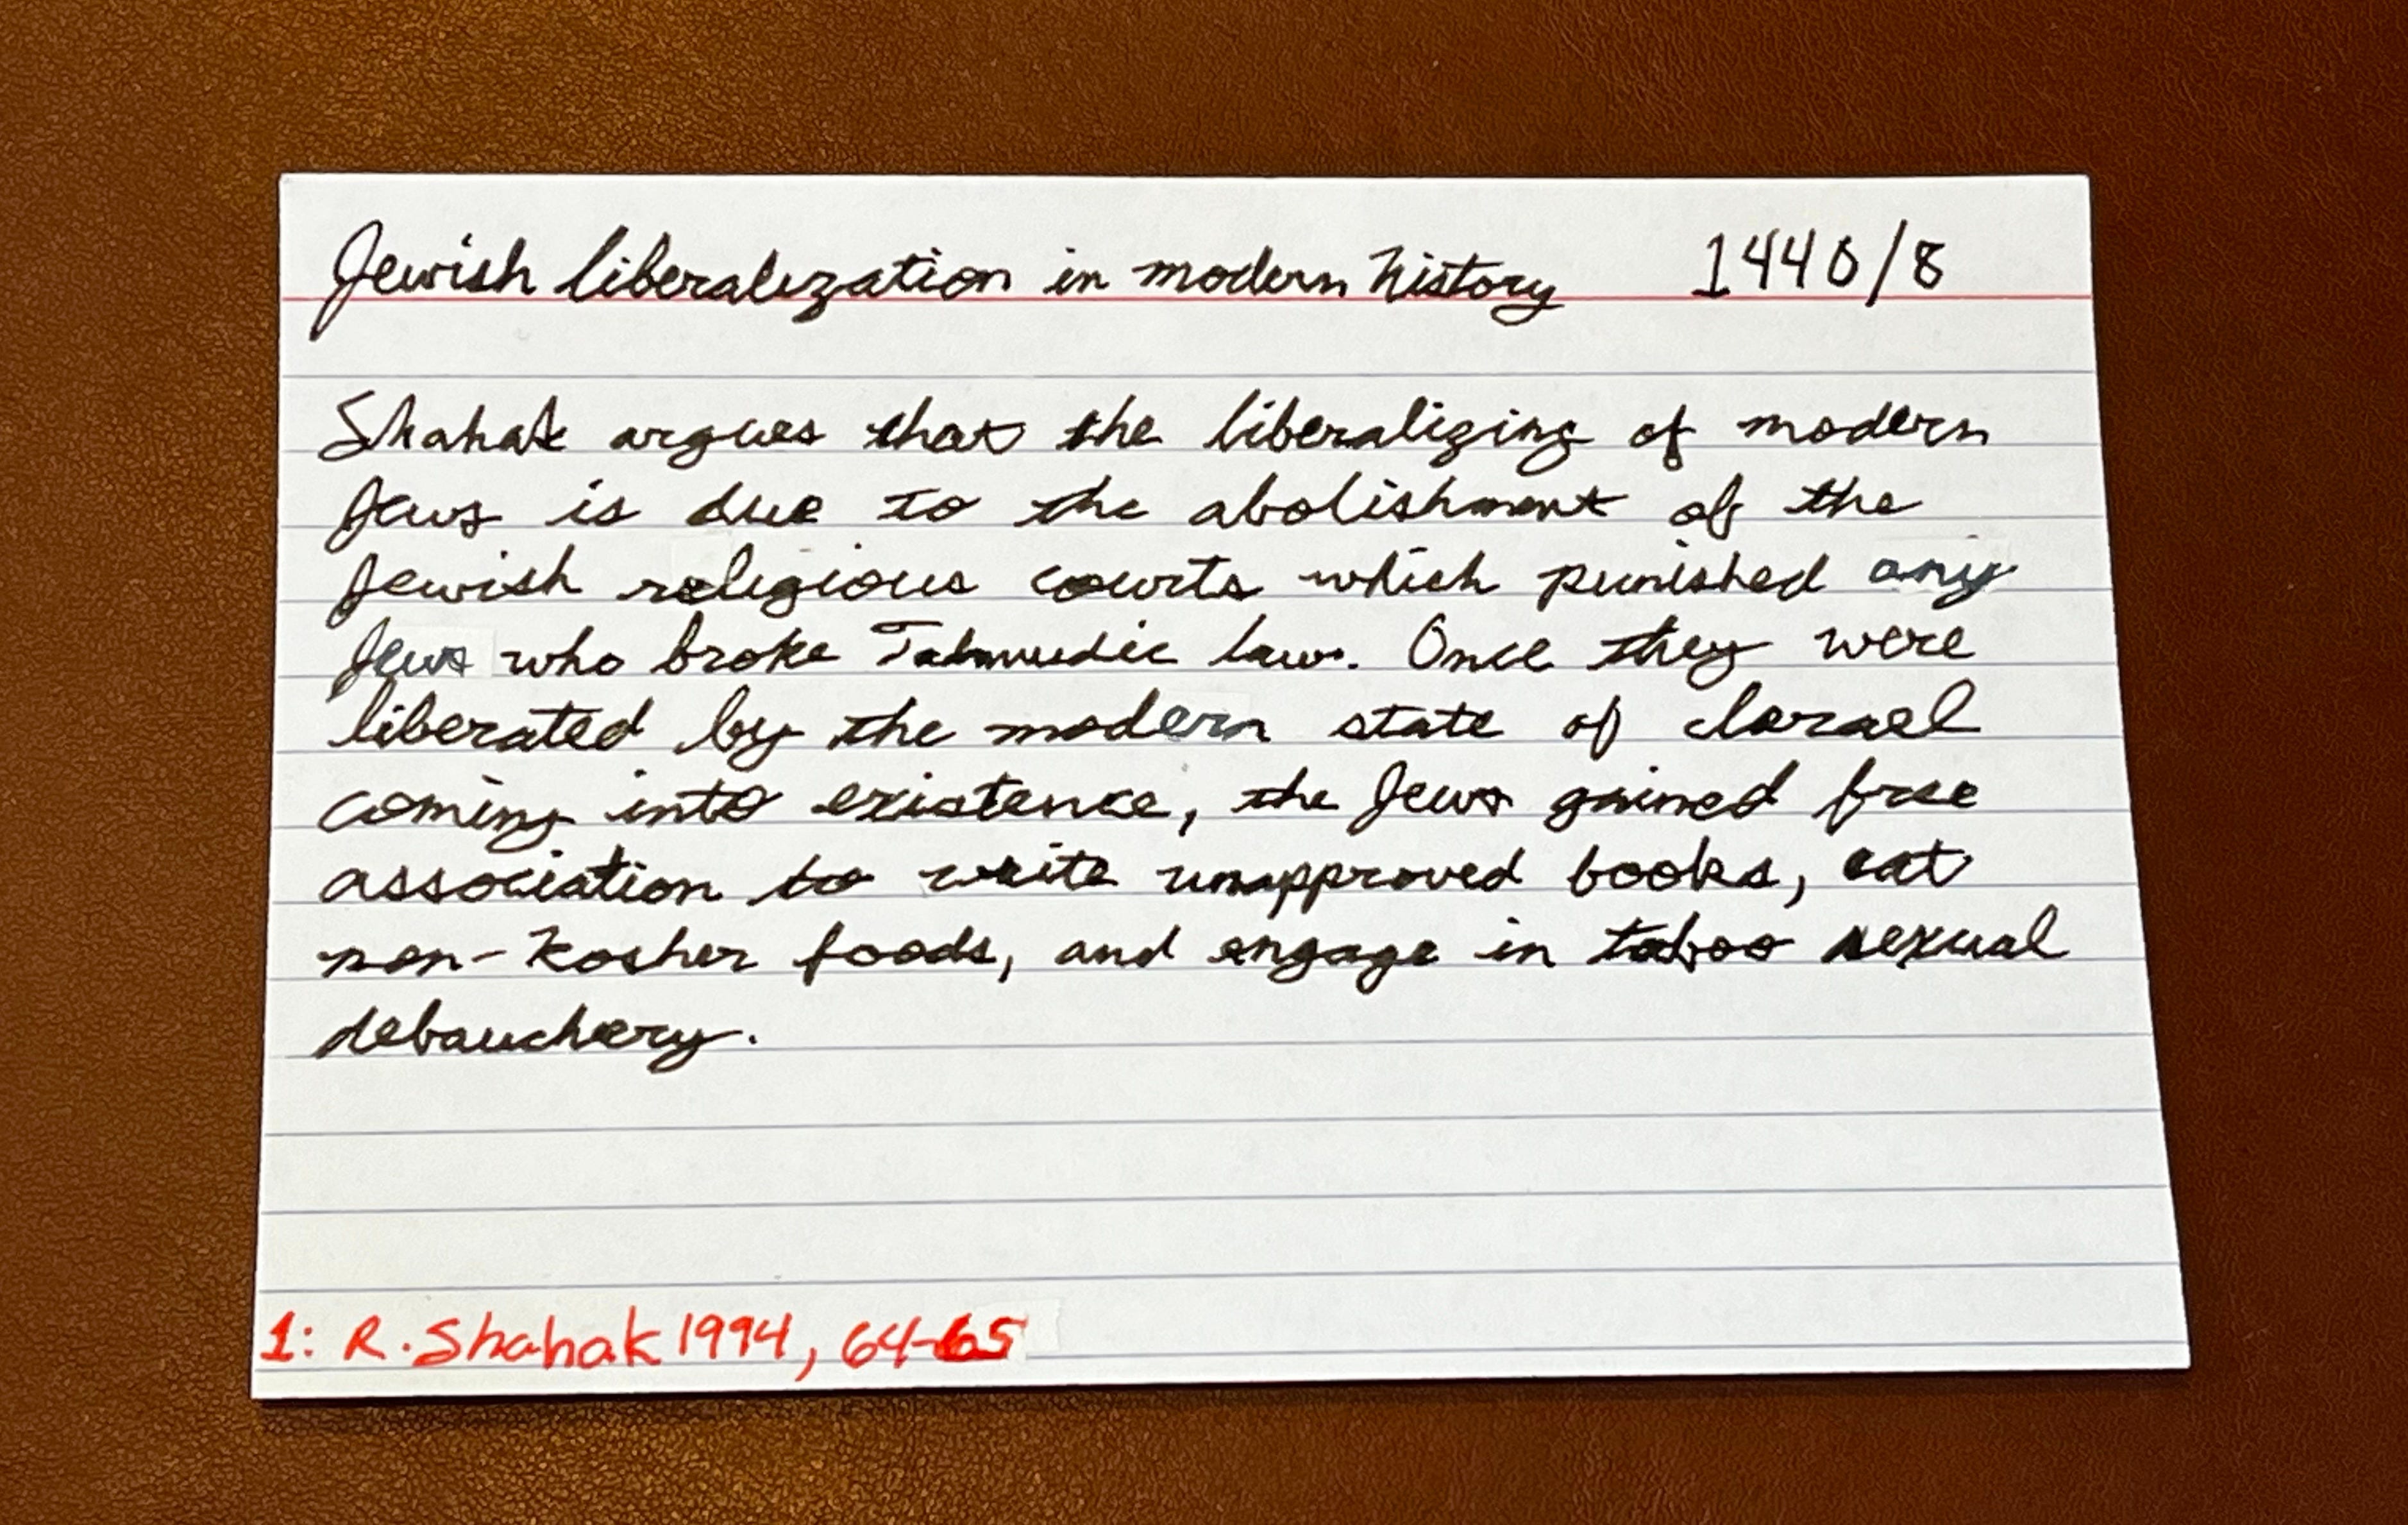 Jewish liberalization in modern history 1440/8
Shahak argues that the liberalizing of modern
Jews is due to the abolishment of the
Jewish religious courts which punished any
Jews who broke Talmudic law. Once they were
liberated by the modern state of Israel
coming into existence, the Jews gained free
association to write unapproved books, eat
non-kosher foods, and engage in taboo sexual
debauchery.
1: R. Shahak 1994, 64-65